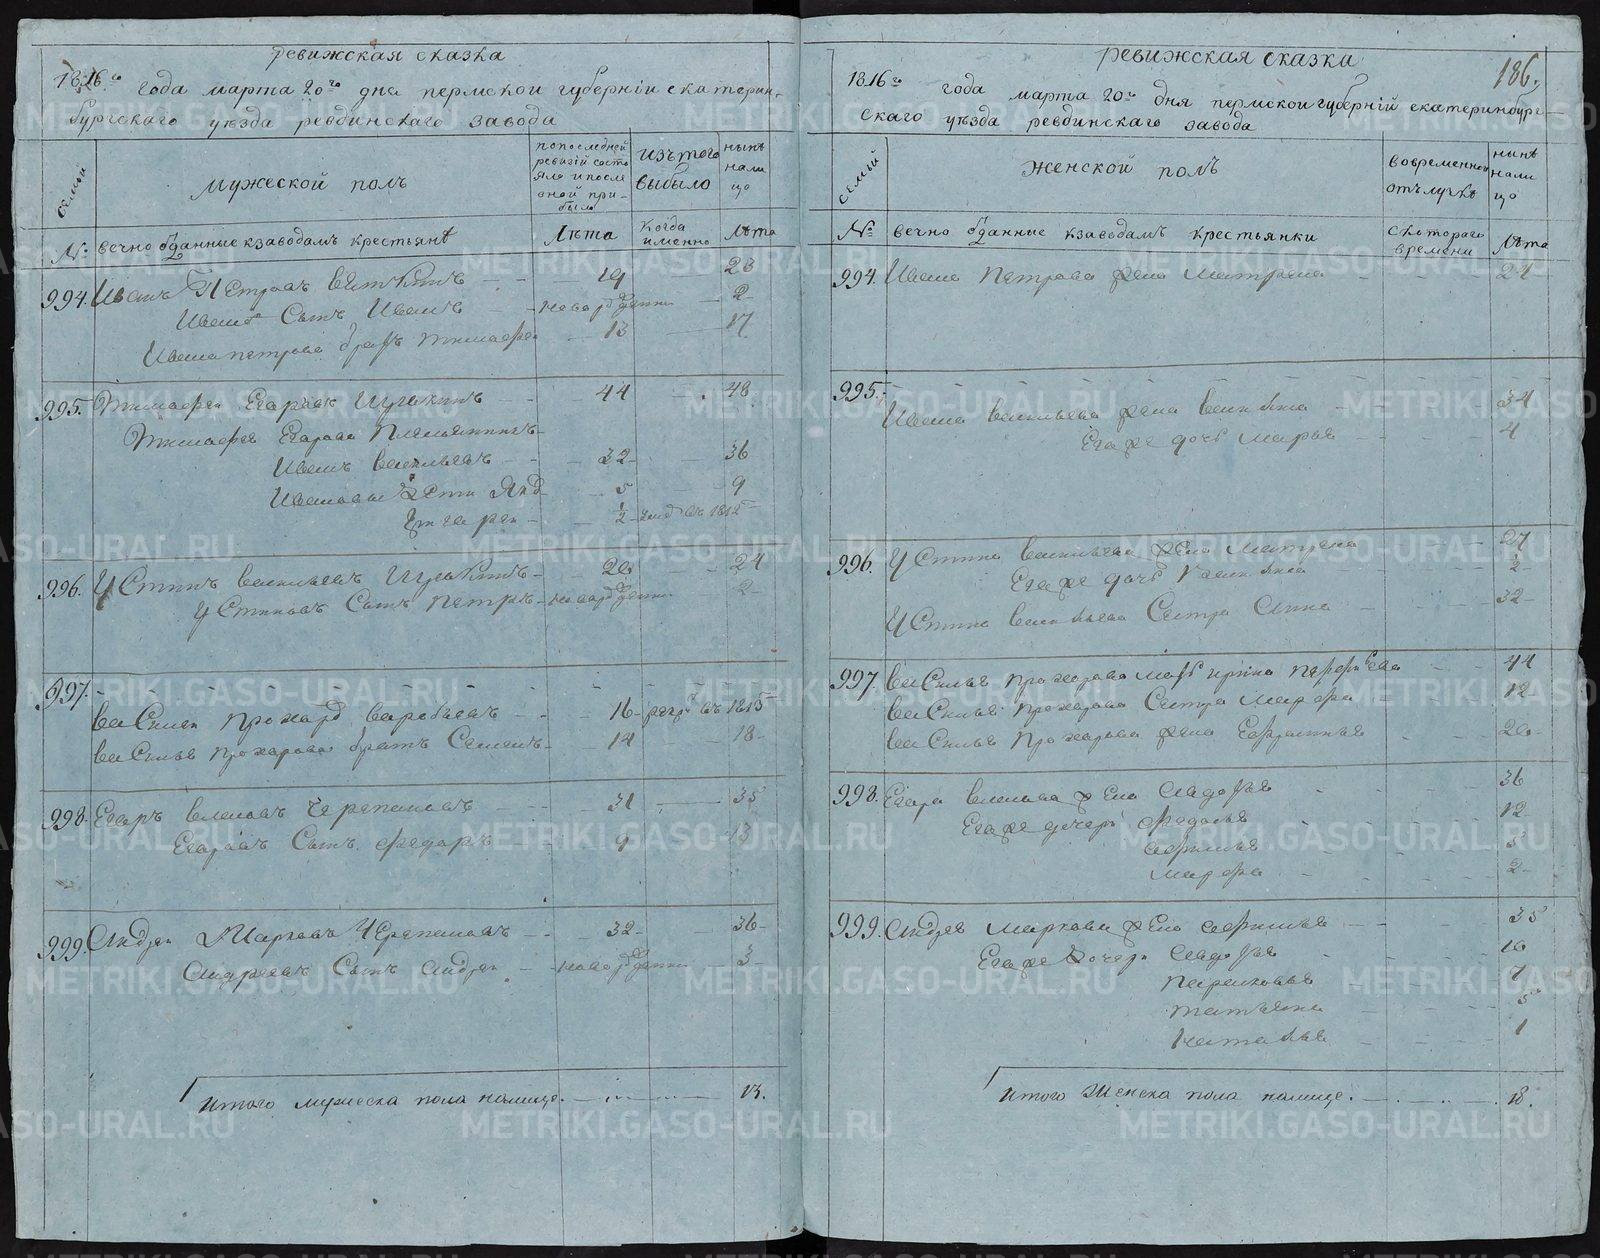 ревижская сказка
1816го года марта 20го дня пермской губернiи екатерин-
бургскаго уѣзда ревдинскаго завода
семьи
мужеской полъ
попоследней ревизiй состояло ипосле оной прибыло
изътого выбыло
нынѣ налицо
№
вечно отданные кзаводамъ крестьянѣ
Лѣта
Когда именно
Лѣта
994. Иванъ Петровъ 19 23
Ивана Сынъ Иванъ новорожденни 2
Ивана петрова братъ тимофей 13 17
995. Тимофей Егоровъ 44 48
Тимофея Егорова Племянникъ
Иванъ васильевъ 32 36
Ивановы дети 5 9
Григорей 1/2 въ 1812
996. Устинъ васильевъ 20 24
Устиновъ Сынъ петръ новорожденни 2
997.
василей прохоровъ варобьевъ 16 рекрутъ въ 1813
василья прохорова братъ Семенъ 14 18
998. Егоръ власовъ Черепановъ 31 35
Егоровъ Сынъ федоръ 9 13
999. Андрей Марковъ Черепановъ 32 36
Андреевъ Сынъ Андрей новорожденни 3
итого мужеска пола налице 13.
ревижская сказка
186.
1816го года марта 20го дня пермской губернiй екатеринбург-
скаго уѣзда ревдинскаго завода
семьи
женской полъ
вовременной отълучкѣ
нынѣ налицо
№
вечно отданные кзаводамъ крестьянки
скотораго времени
Лѣта
994. Ивана Петрова жена Матрена 24
995.
Ивана васильева жена 34
Егоже дочь Марья 4
996. Устина васильева жена матрена 27
Егоже дочь 2
Устина васильева Сестра 32
997. василья прохорова мать ирина 44
василья прохорова Сестра Марфа 12
василья прохорова жена 20
998. Егора власова жена Федосья 36
Егоже дочери федосья 12
афимья 5
марфа 2
999. Андрея маркова жена афимья 35
Егоже дочери Федосья 10
парасковья 7
татьяна 5
наталья 1
итого женска пола налице. 18.
METRIKI.GASO-URAL.RU